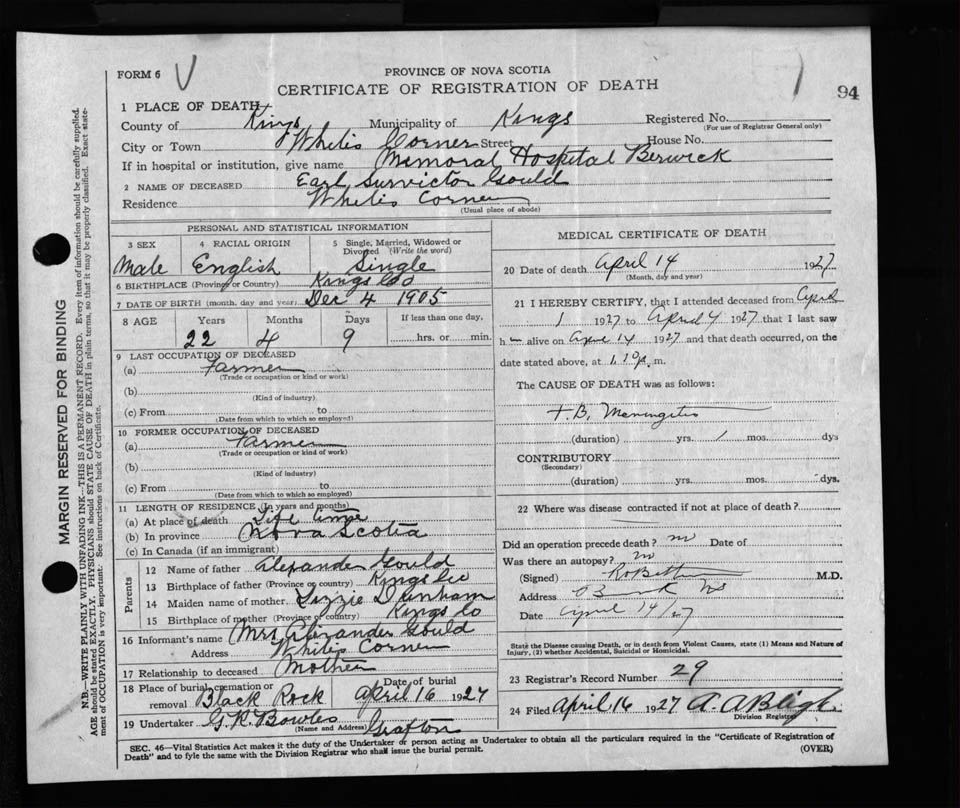 FORM 6
PROVINCE OF NOVA SCOTIA
CERTIFICATE OF REGISTRATION OF DEATH
94
1 PLACE OF DEATH
County of Kings Municipality of Kings Registered No.
(For use of Registrar General only)
City or Town Whites Corner Street House No.
If in hospital or institution, give name Memoral Hospital Berwick
2 NAME OF DECEASED Earl Gould
Residence Whites Corner
(Usual place of abode)
PERSONAL AND STATISTICAL INFORMATION
3 SEX 4 RACIAL ORIGIN 5 Single, Married, Widowed or Divorced (Write the word)
Male English Single
6 BIRTHPLACE (Province or Country) Kings Co
7 DATE OF BIRTH (month, day and year) Dec 4 1905
8 AGE Years Months Days If less than one day,
22 4 9 hrs. or min.
9 LAST OCCUPATION OF DECEASED
(a) Farmer
(Trade or occupation or kind or work)
(b)
(Kind of industry)
(c) From to
(Date from which to which so employed)
10 FORMER OCCUPATION OF DECEASED
(a) Farmer
(Trade or occupation or kind of work)
(b)
(Kind of industry)
(c) From to
(Date from which to which so employed)
11 LENGTH OF RESIDENCE (In years and months)
(a) At place of death Life time
(b) In province Nova Scotia
(c) In Canada (if an immigrant)
Parents
12 Name of father Alexander Gould
13 Birthplace of father (Province or country) Kings Co
14 Maiden name of mother Lizzie Dunham
15 Birthplace of mother (Province or country) Kings Co
16 Informant's name Mrs Alexander Gould
Address Whites Corner
17 Relationship to deceased Mother
18 Place of burial, cremation or removal Black Rock Date of burial April 16 1927
19 Undertaker G.R. Bowles Grafton
(Name and Address)
MEDICAL CERTIFICATE OF DEATH
20 Date of death April 14 1927
(Month, day and year)
21 I HEREBY CERTIFY, that I attended deceased from April
1 1927 to April 1927 that I last saw
h alive on April 14 1927 and that death occurred, on the
date stated above, at m.
The CAUSE OF DEATH was as follows:
T.B. Meningitis
(duration) yrs. 1 mos. dys
CONTRIBUTORY
(Secondary)
(duration) yrs. mos. dys.
22 Where was disease contracted if not at place of death?
Did an operation precede death? no Date of
Was there an autopsy? no
(Signed) M.D.
Address NS
Date April 14/27
State the Disease causing Death, or in death from Violent Causes, state (1) Means and Nature of
Injury, (2) whether Accidental, Suicidal or Homicidal.
23 Registrar's Record Number 29
24 Filed April 16 1927 A. A Bligh
Division Registrar
SEC. 46—Vital Statistics Act makes it the duty of the Undertaker or person acting as Undertaker to obtain all the particulars required in the "Certificate of Registration of
Death" and to fyle the same with the Division Registrar who shall issue the burial permit.
(OVER)
MARGIN RESERVED FOR BINDING
N.B.—WRITE PLAINLY WITH UNFADING INK—THIS IS A PERMANENT RECORD. Every item of information should be carefully supplied.
AGE should be stated EXACTLY. PHYSICIANS should STATE CAUSE OF DEATH in plain terms, so that it may be properly classified. Exact state-
ment of OCCUPATION is very important. See instructions on back of Certificate.